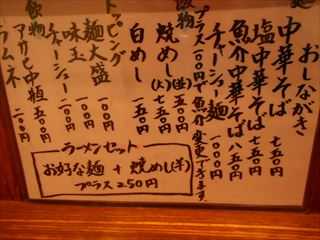 おしながき
麺
中華そば 七五〇円
塩中華そば 七五〇円
魚介中華そば 八五〇円
チャーシュー麺 一〇〇〇円
プラス一〇〇円で魚介変更できます。
飯物
焼めし (並) 五五〇円
(大)
白めし 一五〇円
トッピング
麺大盛 一〇〇円
味玉 一〇〇円
チャーシュー
飲物
アサヒ中瓶 五〇〇円
ラムネ 二〇〇円
ラーメンセット
お好な麺 + 焼めし(半)
プラス250円